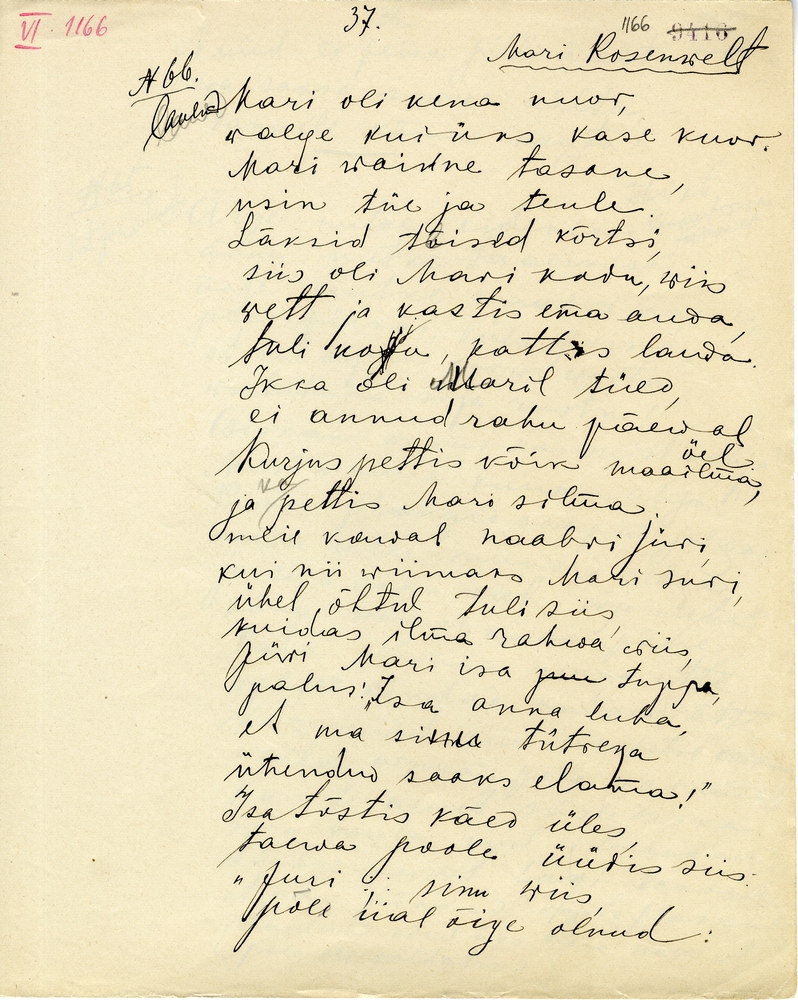 VI. 1166
37.
1166 9416
Mari Rosenwelt
N 66.
Mari oli kena nuor,
walge kui üns kase kuor.
Mari waikne tasane,
usin tüe ja teule.
Läksid tõised kõrtsi,
siis oli Mari kodu, wiis
wett ja kastis ema auda,
tuli koju, kattis lauda.
Ikka oli Maril tüed,
ei annud rahu päewal
öel
Kurjus pettis kõik maailma,
ka
ja pettis Mari silma.
meie kawal naabri Jüri,
kui nii wiimaks Mari suri,
ühel õhtul tuli siis,
kuidas ilma rahwa wiis,
Jüri Mari isa tuppa,
palus: "Isa anna luba,
et ma sinu tütrega
ühendud saaks elama!"
Isa tõstis käed üles,
taewa poole üüdis siis:
"Juri .. sinu wiis,
põle iial õige olnud: